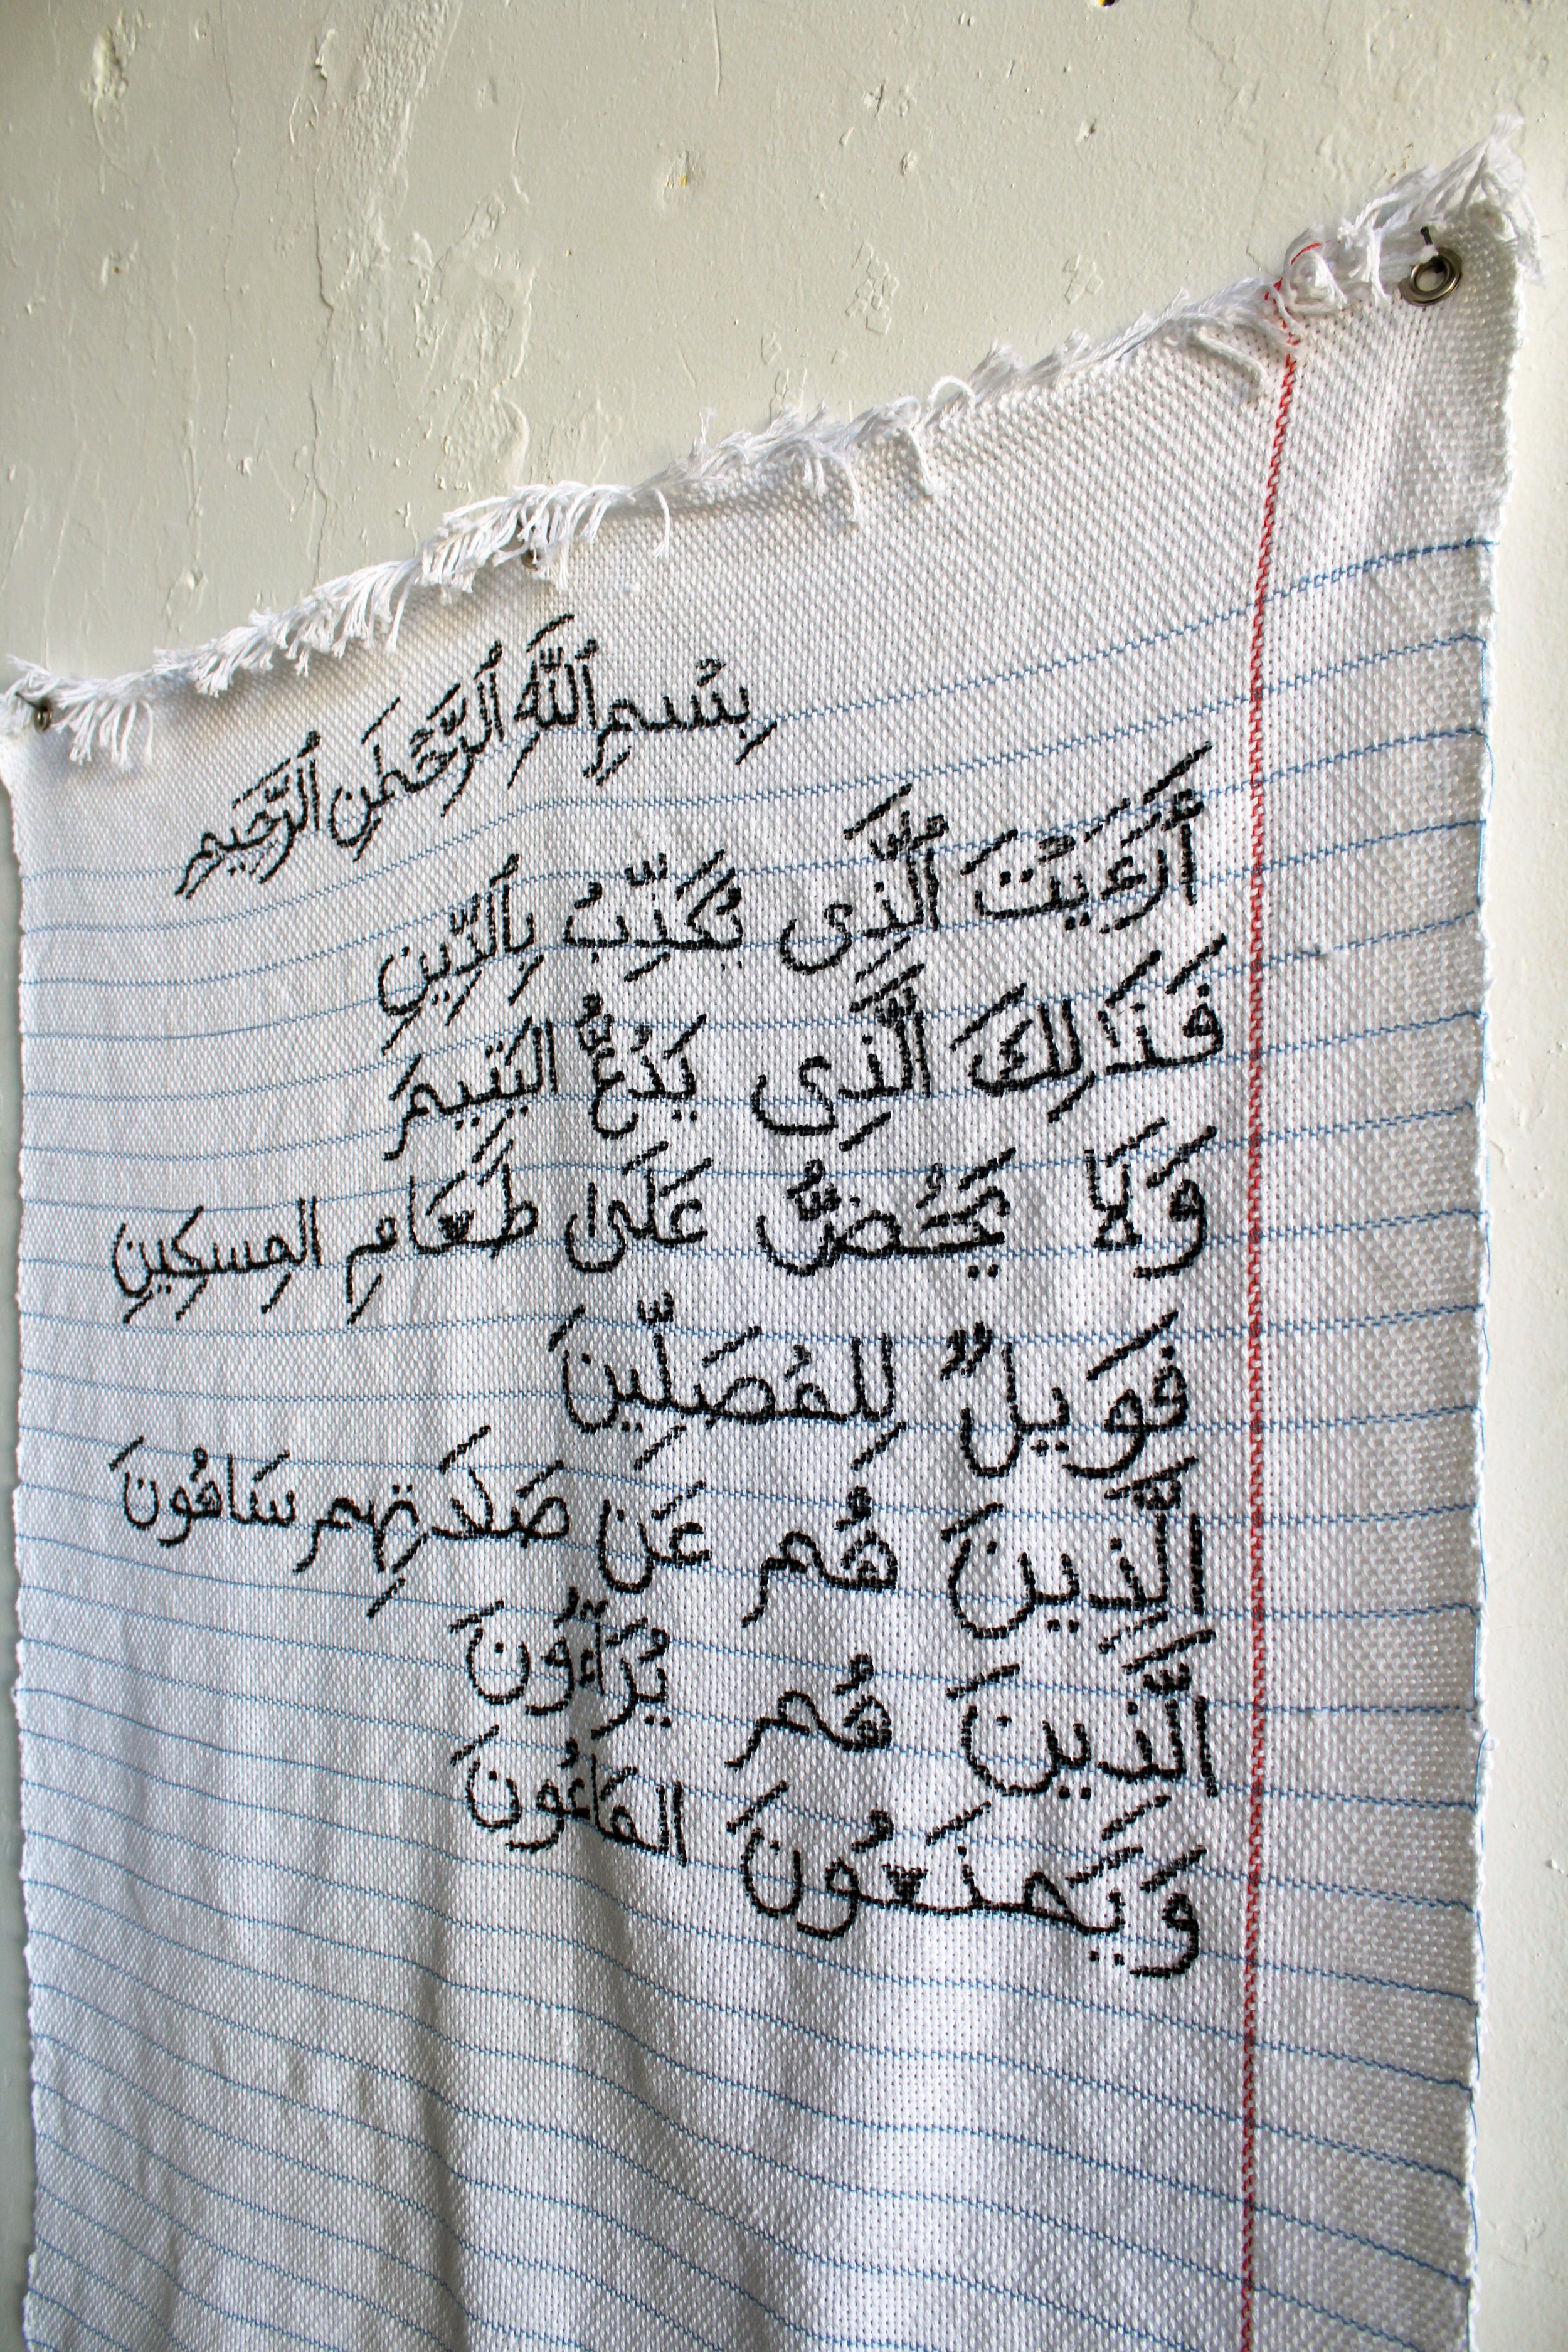 بِسْمِ ٱللَّهِ ٱلرَّحْمَٰنِ ٱلرَّحِيمِ
أَرَءَيْتَ ٱلَّذِى يُكَذِّبُ بِٱلدِّينِ
فَذَٰلِكَ الَّذِى يَدُعُّ اليَتِيمَ
وَلَا يَحُضُّ عَلَىٰ طَعَامِ المِسكِينِ
فَوَيلٌ لِلمُصَلِّينَ
الَّذِينَ هُم عَن صَلَاتِهِم سَاهُونَ
الَّذِينَ هُم يُرَآءُونَ
وَيَمنَعُونَ المَاعُونَ